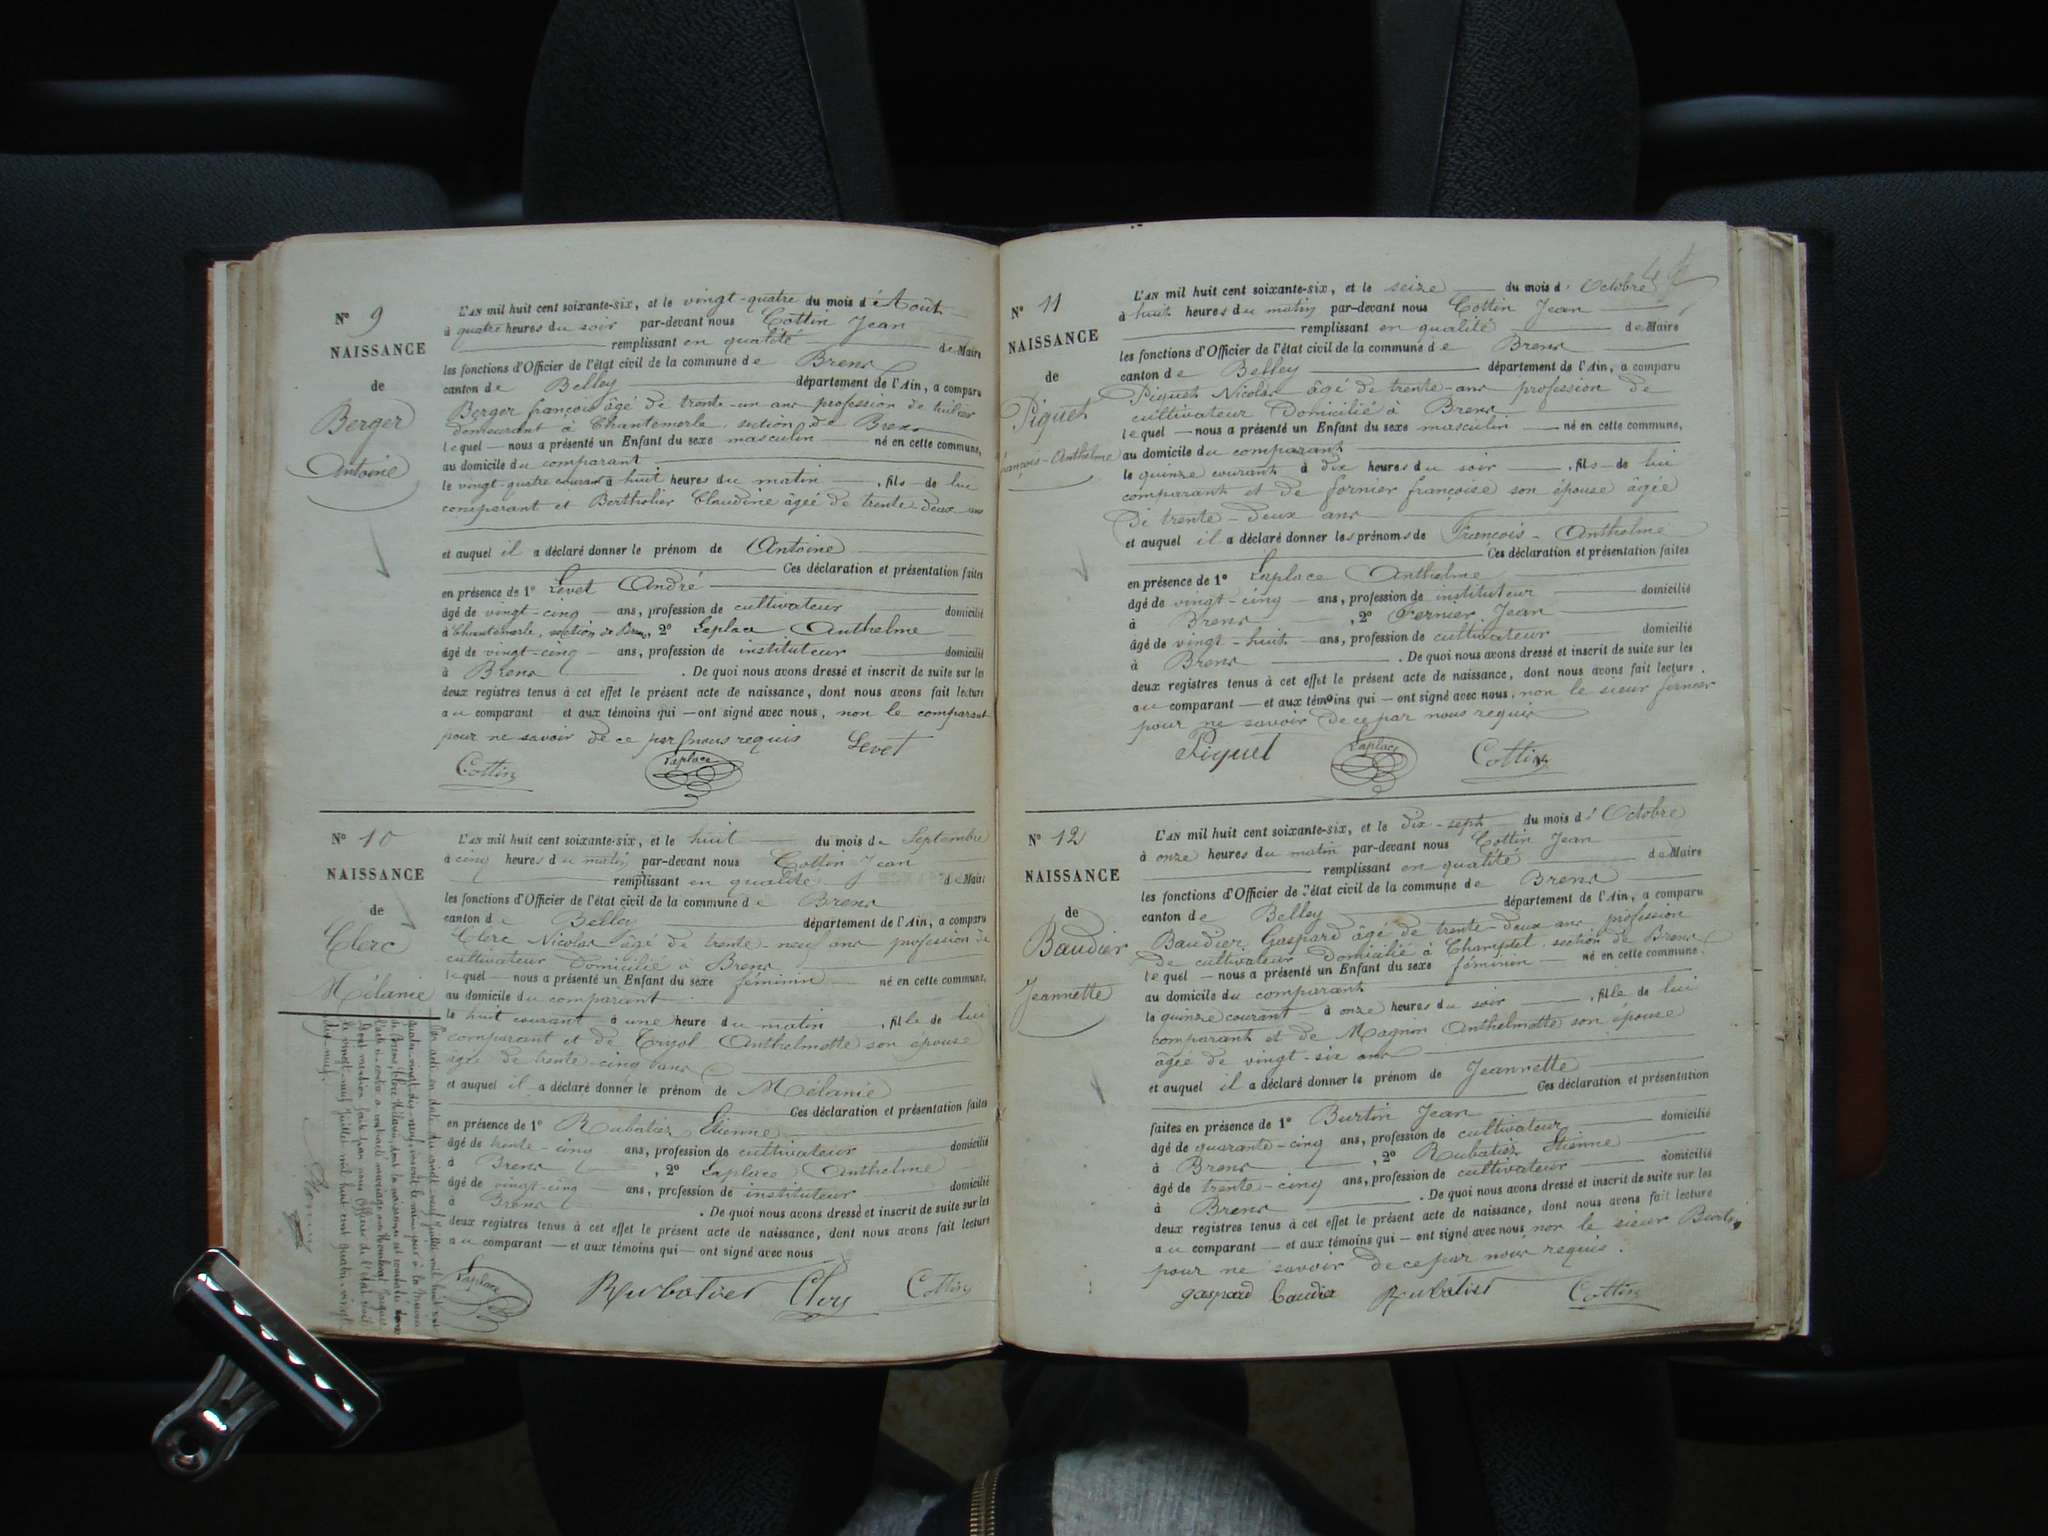 N° 9
NAISSANCE
de
Berger
Antoine
L'AN mil huit cent soixante-six, et le vingt-quatre du mois d'Août
à quatre heures du soir par-devant nous Cottin Jean
remplissant en qualité de Maire
les fonctions d'Officier de l'état civil de la commune de Brens
canton de Belley département de l'Ain, a comparu
Berger françois âgé de trente-un ans profession de tuilier
demeurant à Chantemerle, section de Brens
lequel nous a présenté un Enfant du sexe masculin né en cette commune,
au domicile du comparant
le vingt-quatre courant à huit heures du matin, fils de lui
comparant et Bertholier Claudine âgée de trente-deux ans
et auquel il a déclaré donner le prénom de Antoine
Ces déclaration et présentation faites
en présence de 1° Levet André
âgé de vingt-cinq ans, profession de cultivateur domicilié
à Chantemerle, section de Brens, 2° Laplace Anthelme
âgé de vingt-cinq ans, profession de instituteur domicilié
à Brens. De quoi nous avons dressé et inscrit de suite sur les
deux registres tenus à cet effet le présent acte de naissance, dont nous avons fait lecture
au comparant et aux témoins qui ont signé avec nous, non le comparant
pour ne savoir de ce par nous requis Levet
Cottin Laplace
N° 10
NAISSANCE
de
Clerc
Mélanie
L'AN mil huit cent soixante-six, et le huit du mois de Septembre
à cinq heures du matin par-devant nous Cottin Jean
remplissant en qualité de Maire
les fonctions d'Officier de l'état civil de la commune de Brens
canton de Belley département de l'Ain, a comparu
Clerc Nicolas âgé de trente-neuf ans profession de
cultivateur domicilié à Brens
lequel nous a présenté un Enfant du sexe féminin né en cette commune,
au domicile du comparant
le huit courant à une heure du matin, fille de lui
comparant et de Anthelmette son épouse
âgée de trente-cinq ans
et auquel il a déclaré donner le prénom de Mélanie
Ces déclaration et présentation faites
en présence de 1° Rubatier Etienne
âgé de trente-cinq ans, profession de cultivateur domicilié
à Brens, 2° Laplace Anthelme
âgé de vingt-cinq ans, profession de instituteur domicilié
à Brens. De quoi nous avons dressé et inscrit de suite sur les
deux registres tenus à cet effet le présent acte de naissance, dont nous avons fait lecture
au comparant et aux témoins qui ont signé avec nous
Laplace Rubatier Clerc Cottin
Par acte en date du vingt-neuf Juillet mil huit cent
quatre-vingt-dix-neuf, inscrit le même jour à la Mairie
de Brens, Clerc Mélanie, dont la naissance est constatée dans
l'acte ci-contre a contracté mariage avec Jacques
Dont mention faite par nous Officier de l'état civil
le vingt-neuf Juillet mil huit cent quatre-vingt
dix-neuf.
N° 11
NAISSANCE
de
Piquet
François-Anthelme
L'AN mil huit cent soixante-six, et le seize du mois d'Octobre
à huit heures du matin par-devant nous Cottin Jean
remplissant en qualité de Maire
les fonctions d'Officier de l'état civil de la commune de Brens
canton de Belley département de l'Ain, a comparu
Piquet Nicolas âgé de trente-ans profession de
cultivateur Domicilié à Brens
lequel nous a présenté un Enfant du sexe masculin né en cette commune,
au domicile du comparant
le quinze courant à dix heures du soir, fils de lui
comparant et de fornier françoise son épouse âgée
De trente-deux ans
et auquel il a déclaré donner les prénoms de François-Anthelme
Ces déclaration et présentation faites
en présence de 1° Laplace Anthelme
âgé de vingt-cinq ans, profession de instituteur domicilié
à Brens, 2° Fernier Jean
âgé de vingt-huit ans, profession de cultivateur domicilié
à Brens. De quoi nous avons dressé et inscrit de suite sur les
deux registres tenus à cet effet le présent acte de naissance, dont nous avons fait lecture
au comparant et aux témoins qui ont signé avec nous, non le sieur fernier
pour ne savoir de ce par nous requis
Piquet Laplace Cottin
N° 12
NAISSANCE
de
Baudier
Jeannette
L'AN mil huit cent soixante-six, et le dix-sept du mois d'Octobre
à onze heures du matin par-devant nous Cottin Jean
remplissant en qualité de Maire
les fonctions d'Officier de l'état civil de la commune de Brens
canton de Belley département de l'Ain, a comparu
Baudier Gaspard âgé de trente-deux ans profession
de cultivateur Domicilié à Champtel, section de Brens
lequel nous a présenté un Enfant du sexe féminin né en cette commune,
au domicile du comparant
le quinze courant à onze heures du soir, fille de lui
comparant et de Magnin Anthelmette son épouse
âgée de vingt-six ans
et auquel il a déclaré donner le prénom de Jeannette
Ces déclaration et présentation
faites en présence de 1° Burtin Jean
âgé de quarante-cinq ans, profession de cultivateur domicilié
à Brens, 2° Rubatier Etienne
âgé de trente-cinq ans, profession de cultivateur domicilié
à Brens. De quoi nous avons dressé et inscrit de suite sur les
deux registres tenus à cet effet le présent acte de naissance, dont nous avons fait lecture
au comparant et aux témoins qui ont signé avec nous non le sieur Burtin,
pour ne savoir de ce par nous requis.
gaspard baudier Rubatier Cottin